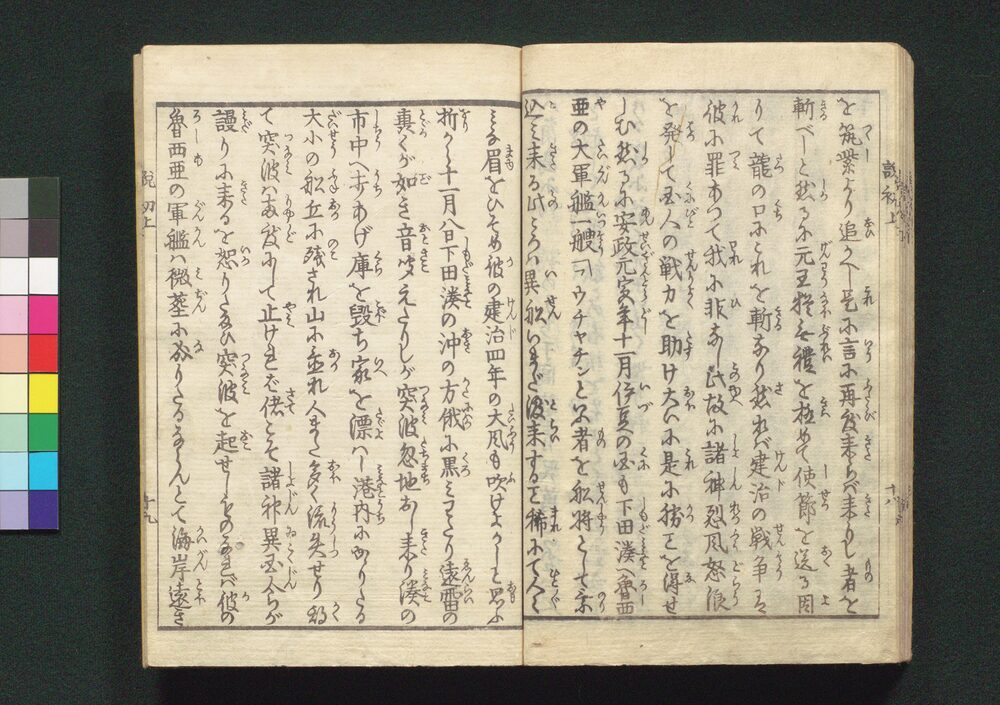 を筑紫より追かへし是に言に再度来らべ来りし者を
斬べしと然るに元王猶無礼を極めて使節を送る因
りて龍の口にこれを斬なり然れば建治の戦争は
彼に罪あつて我に非なし此故に諸神烈風怒浪
を発して国人の戦力を助け大いに是に勝ことを得せ
しむ然るに安政元寅年十一月伊豆の国下田湊へ魯西
亜の大軍艦一艘フウチヤチンと云者を船将として乗
込み来る此ころは異船いまだ渡来すること稀にて人々
みな眉をひそめ彼の建治四年の大風も吹けよかしと思ふ
折から十一月八日下田湊の沖の方俄に黒みわたり遠雷の
轟くが如き音聞えたりしが突波忽地おし来り湊の
市中へ打あげ庫を毀ち家を漂はし港内にかゝりたる
大小の船丘に残され山に登れ人また多く流失せり
て突波は両度にして止けれど偖こそ諸神異国人らが
謾りに来るを怒りたまひ突波を起せしものならん彼の
魯西亜の軍艦は微塵になりたるならんとて海岸遠き
説 初上
十八
説 初上
十九